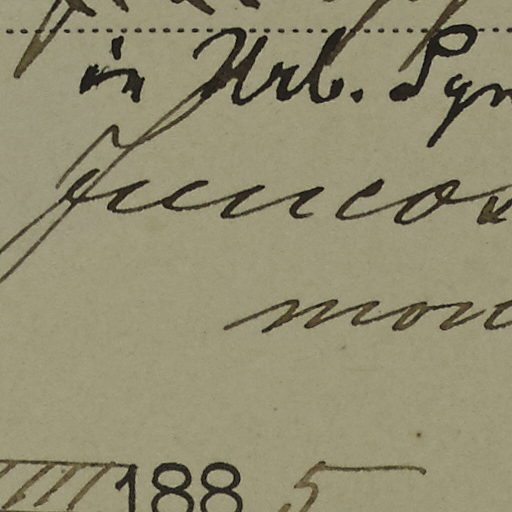 in Urb. Syn
Juncos
mon
1885